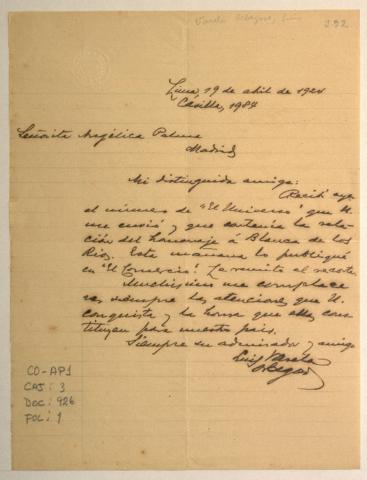 Varela Orbegoso, Luis
Lima, 19 de abril de 1921
Casilla, 1984
Señorita Angélica Palma
Madrid
Mi distinguida amiga:
Recibí ayer
el número de "El Universo" que U.
me envió y que contenía la rela-
ción del homenaje á Blanca de los
Ríos. Esta mañana lo publiqué
en "El Comercio". Le remito el recorte.
Muchísimo me complace
ver siempre las atenciones que U.
conquista y la honra que ellas cons-
tituyen para nuestro país.
Siempre su admirador y amigo
Luis Varela
Orbegoso
CO-AP1
CAJ: 3
DOC: 926
FOL: 1